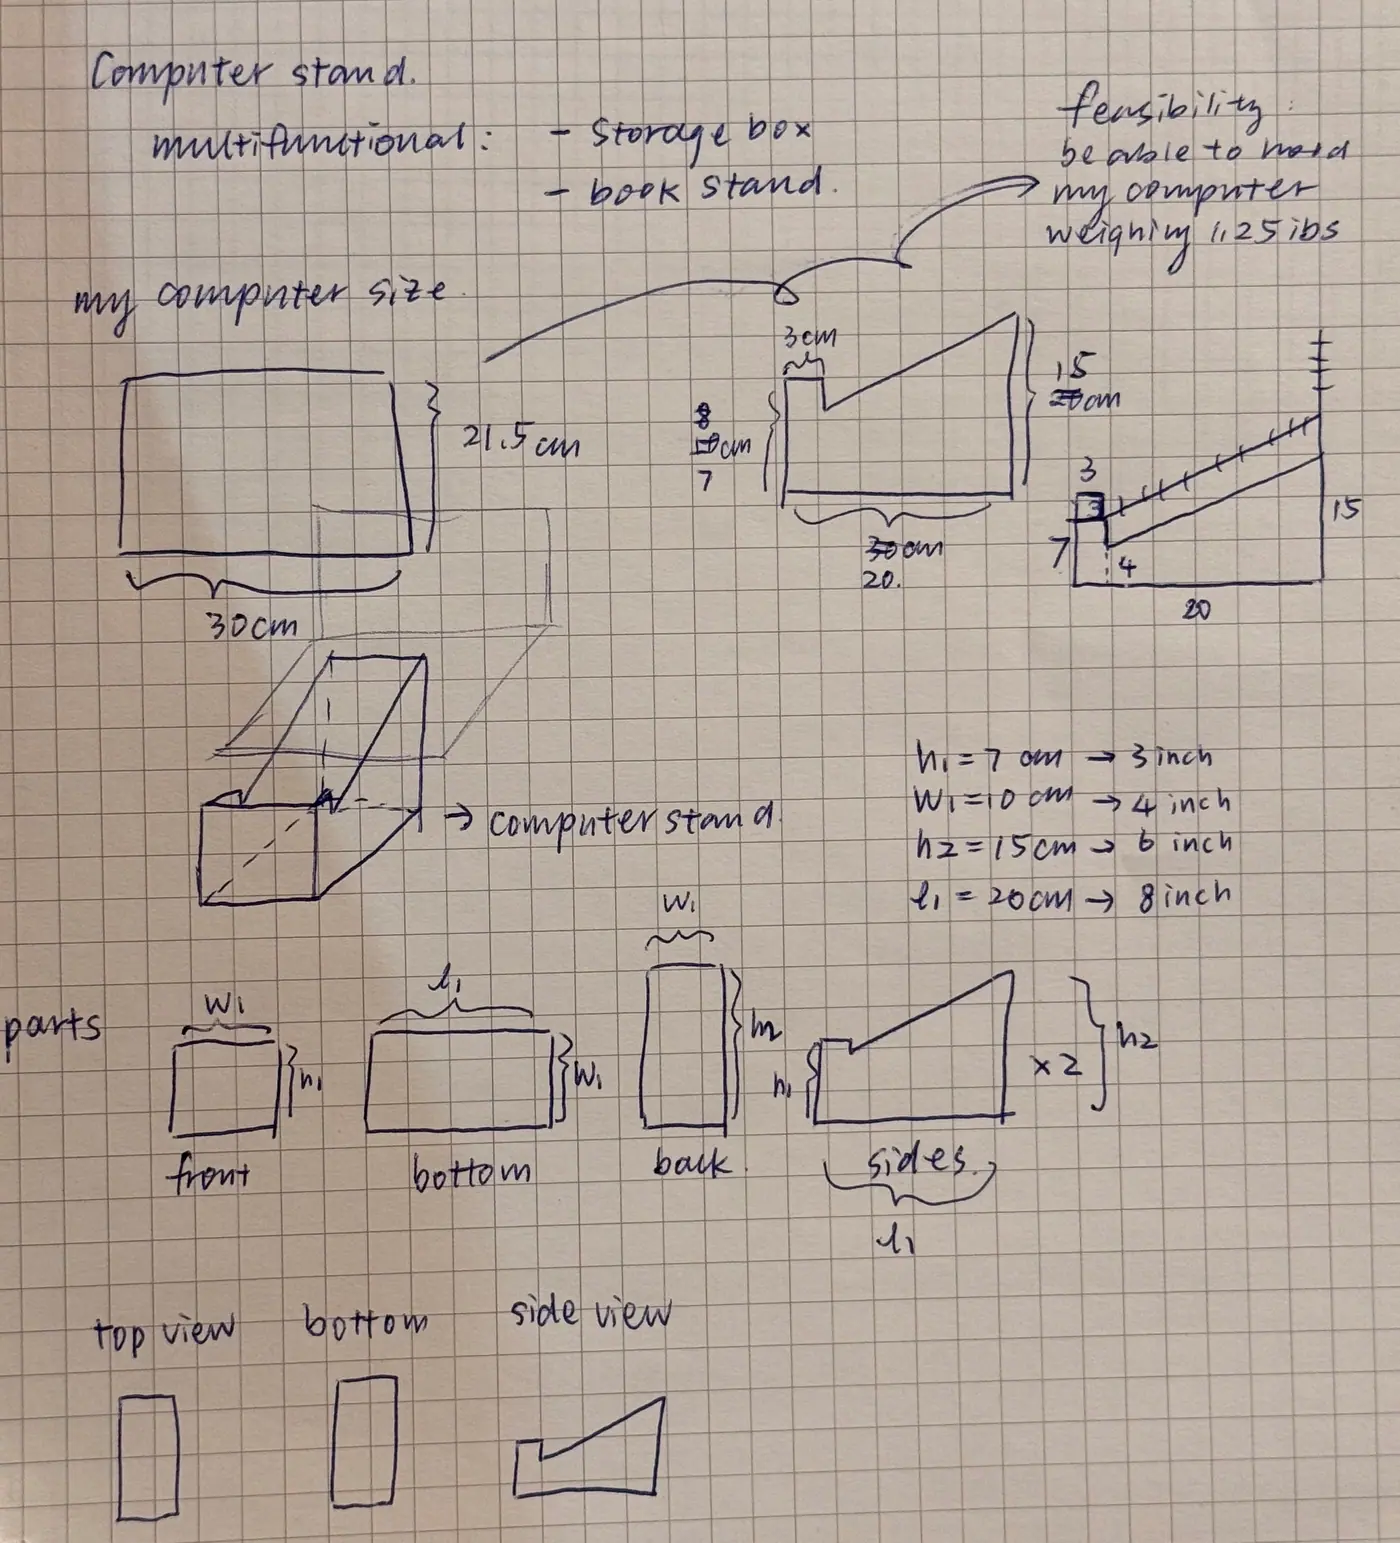 Computer stand.
multifunctional: - Storage box
- book stand.
feasibility:
be able to hold
my computer
weighing 1.25 ibs
my computer size.
21.5cm
30cm
3cm
8
cm
7
15
20cm
30cm
20.
3
7
4
15
20
→ computer stand.
h1 = 7 cm → 3 inch
W1 = 10 cm → 4 inch
h2 = 15cm → 6 inch
l1 = 20cm → 8 inch
parts
W1
h1
front
l1
W1
bottom
W1
h2
back.
h1
x 2
h2
sides.
l1
top view
bottom
side view